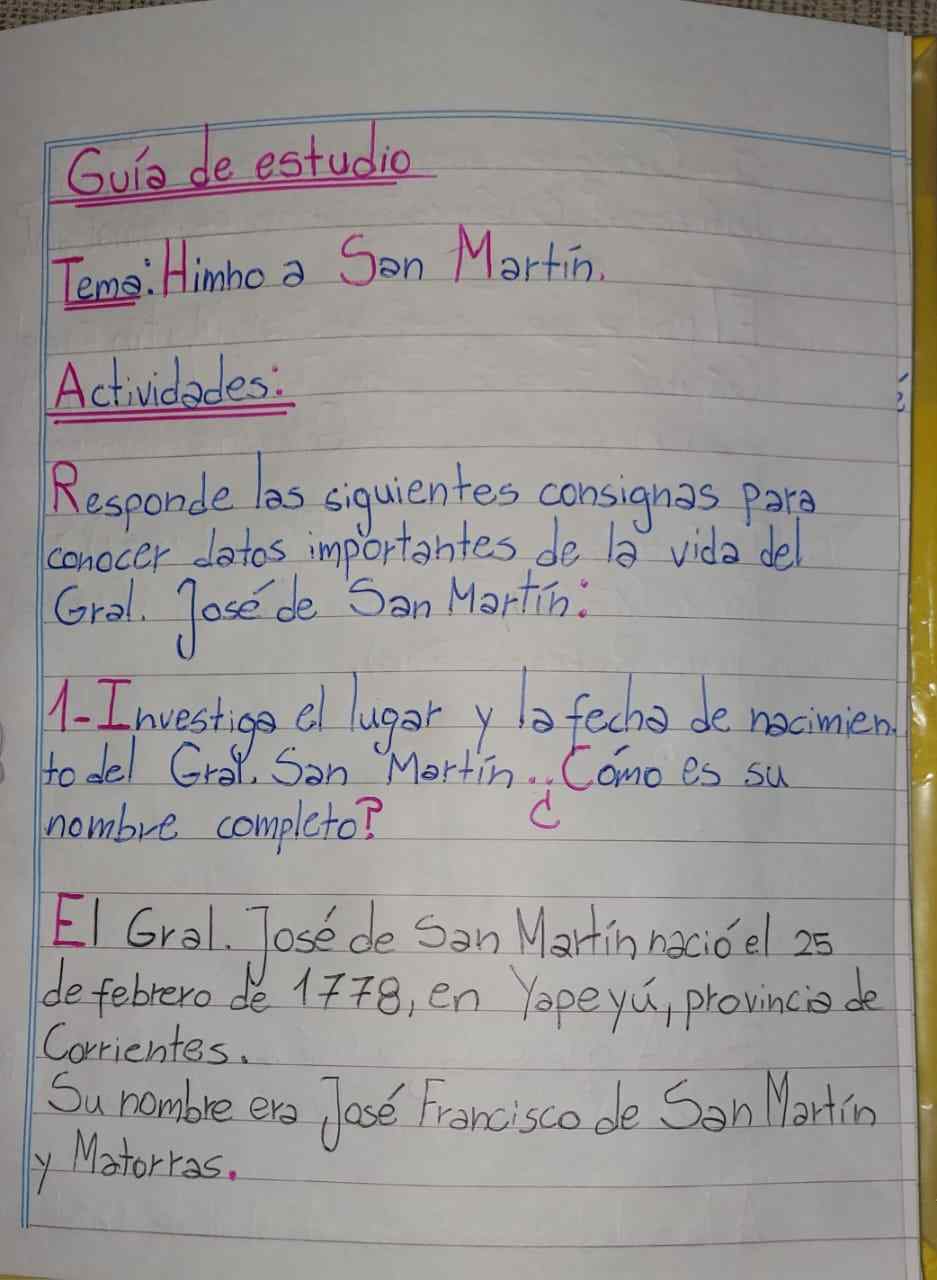 Guía de estudio
Tema: Himno a San Martín.
Actividades:
Responde las siguientes consignas para
conocer datos importantes de la vida del
Gral. José de San Martín:
1-Investiga el lugar y la fecha de nacimien-
to del Gral. San Martín. ¿Cómo es su
nombre completo?
El Gral. José de San Martín nació el 25
de febrero de 1778, en Yapeyú, provincia de
Corrientes.
Su nombre era José Francisco de San Martín
y Matorras.